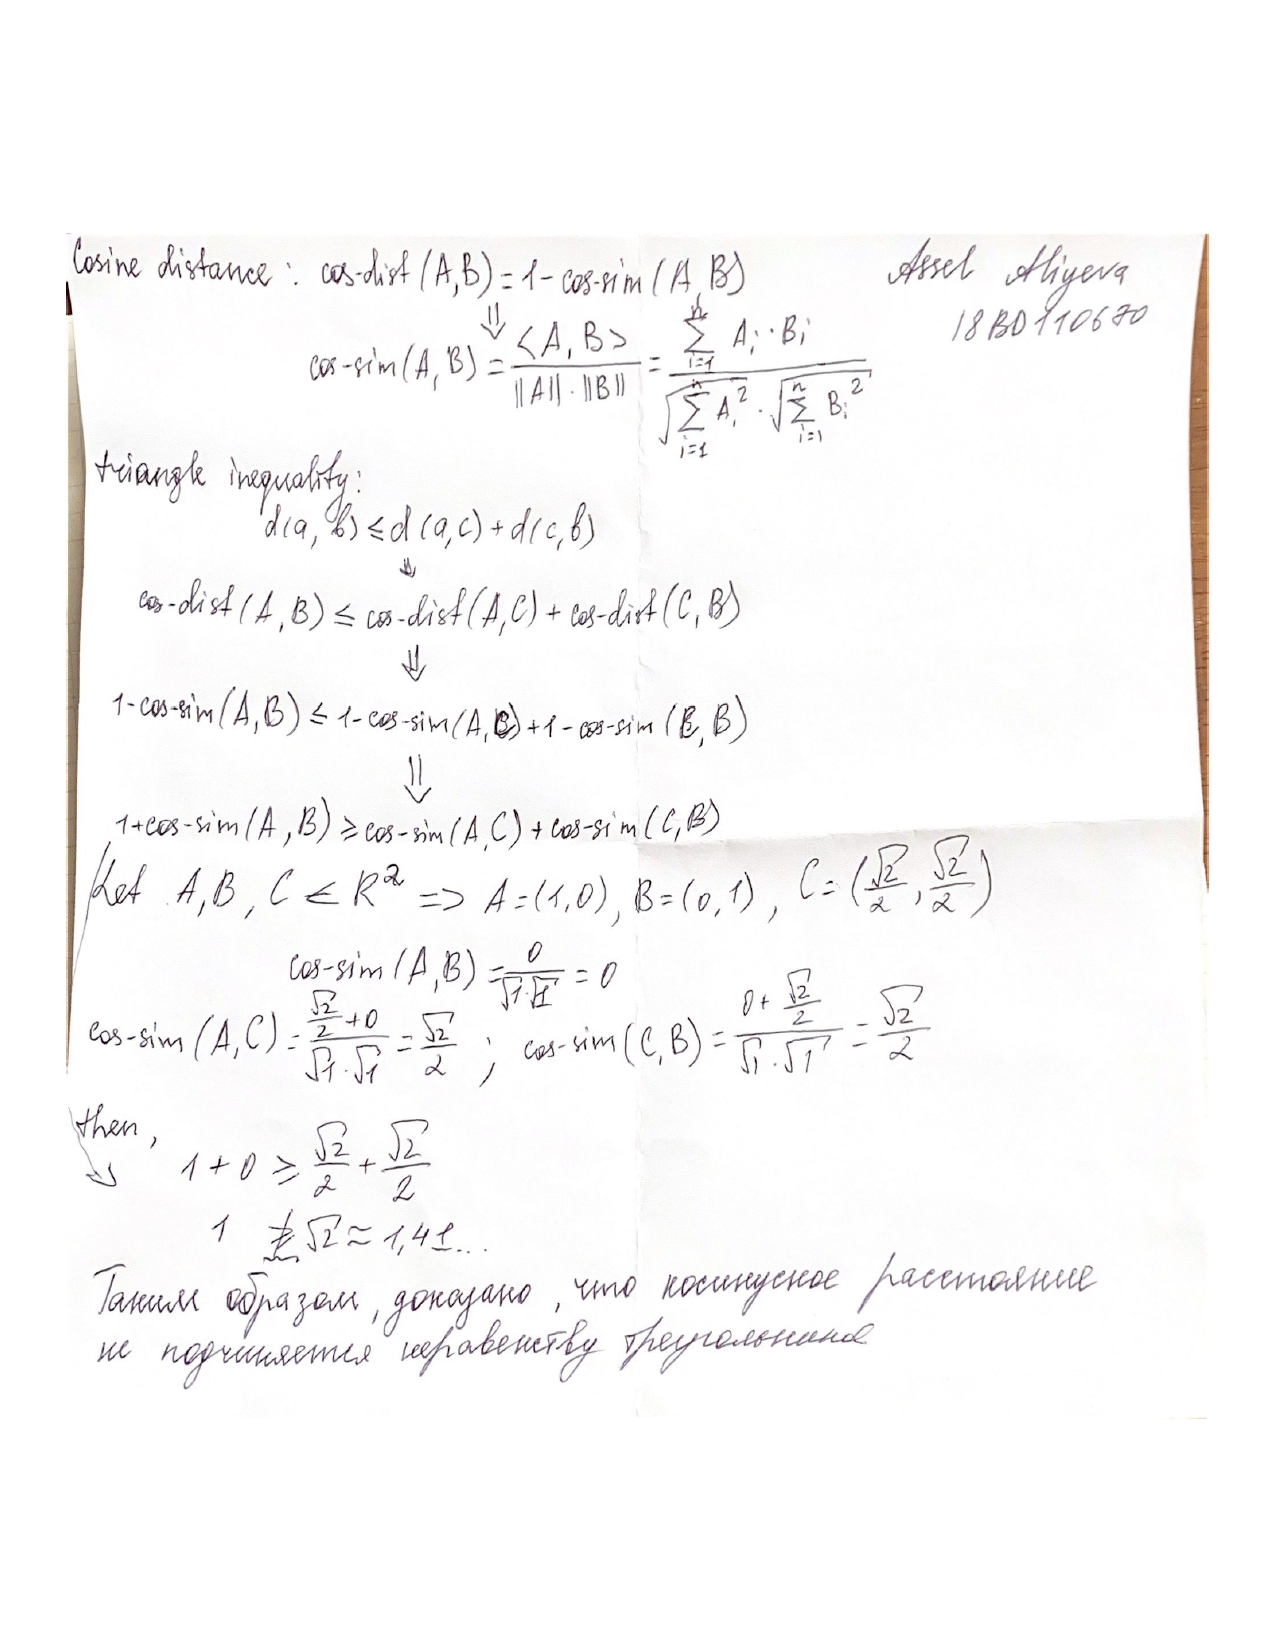 Cosine distance: cos-dist(A,B) = 1 - cos-sim(A,B)
Assel Aliyeva
18BD110670
⇓
cos-sim(A,B) = <A,B> / (||A||·||B||) = ∑_{i=1}^{n} A_i · B_i / (√(∑_{i=1}^{n} A_i^2) · √(∑_{i=1}^{n} B_i^2))
triangle inequality:
d(a,b) ≤ d(a,c) + d(c,b)
⇓
cos-dist(A,B) ≤ cos-dist(A,C) + cos-dist(C,B)
⇓
1-cos-sim(A,B) ≤ 1-cos-sim(A,C) + 1-cos-sim(C,B)
⇓
1+cos-sim(A,B) ≥ cos-sim(A,C) + cos-sim(C,B)
Let A,B,C ∈ R^2 => A=(1,0), B=(0,1), C=(√2/2, √2/2)
cos-sim(A,B) = 0/(√1·√1) = 0
cos-sim(A,C) = (√2/2+0)/(√1·√1) = √2/2 ; cos-sim(C,B) = (0+√2/2)/(√1·√1) = √2/2
then,
⇓ 1+0 ≥ √2/2 + √2/2
1 ≱ √2 ≈ 1,41...
Таким образом, доказано, что косинусное расстояние
не подчиняется неравенству треугольника